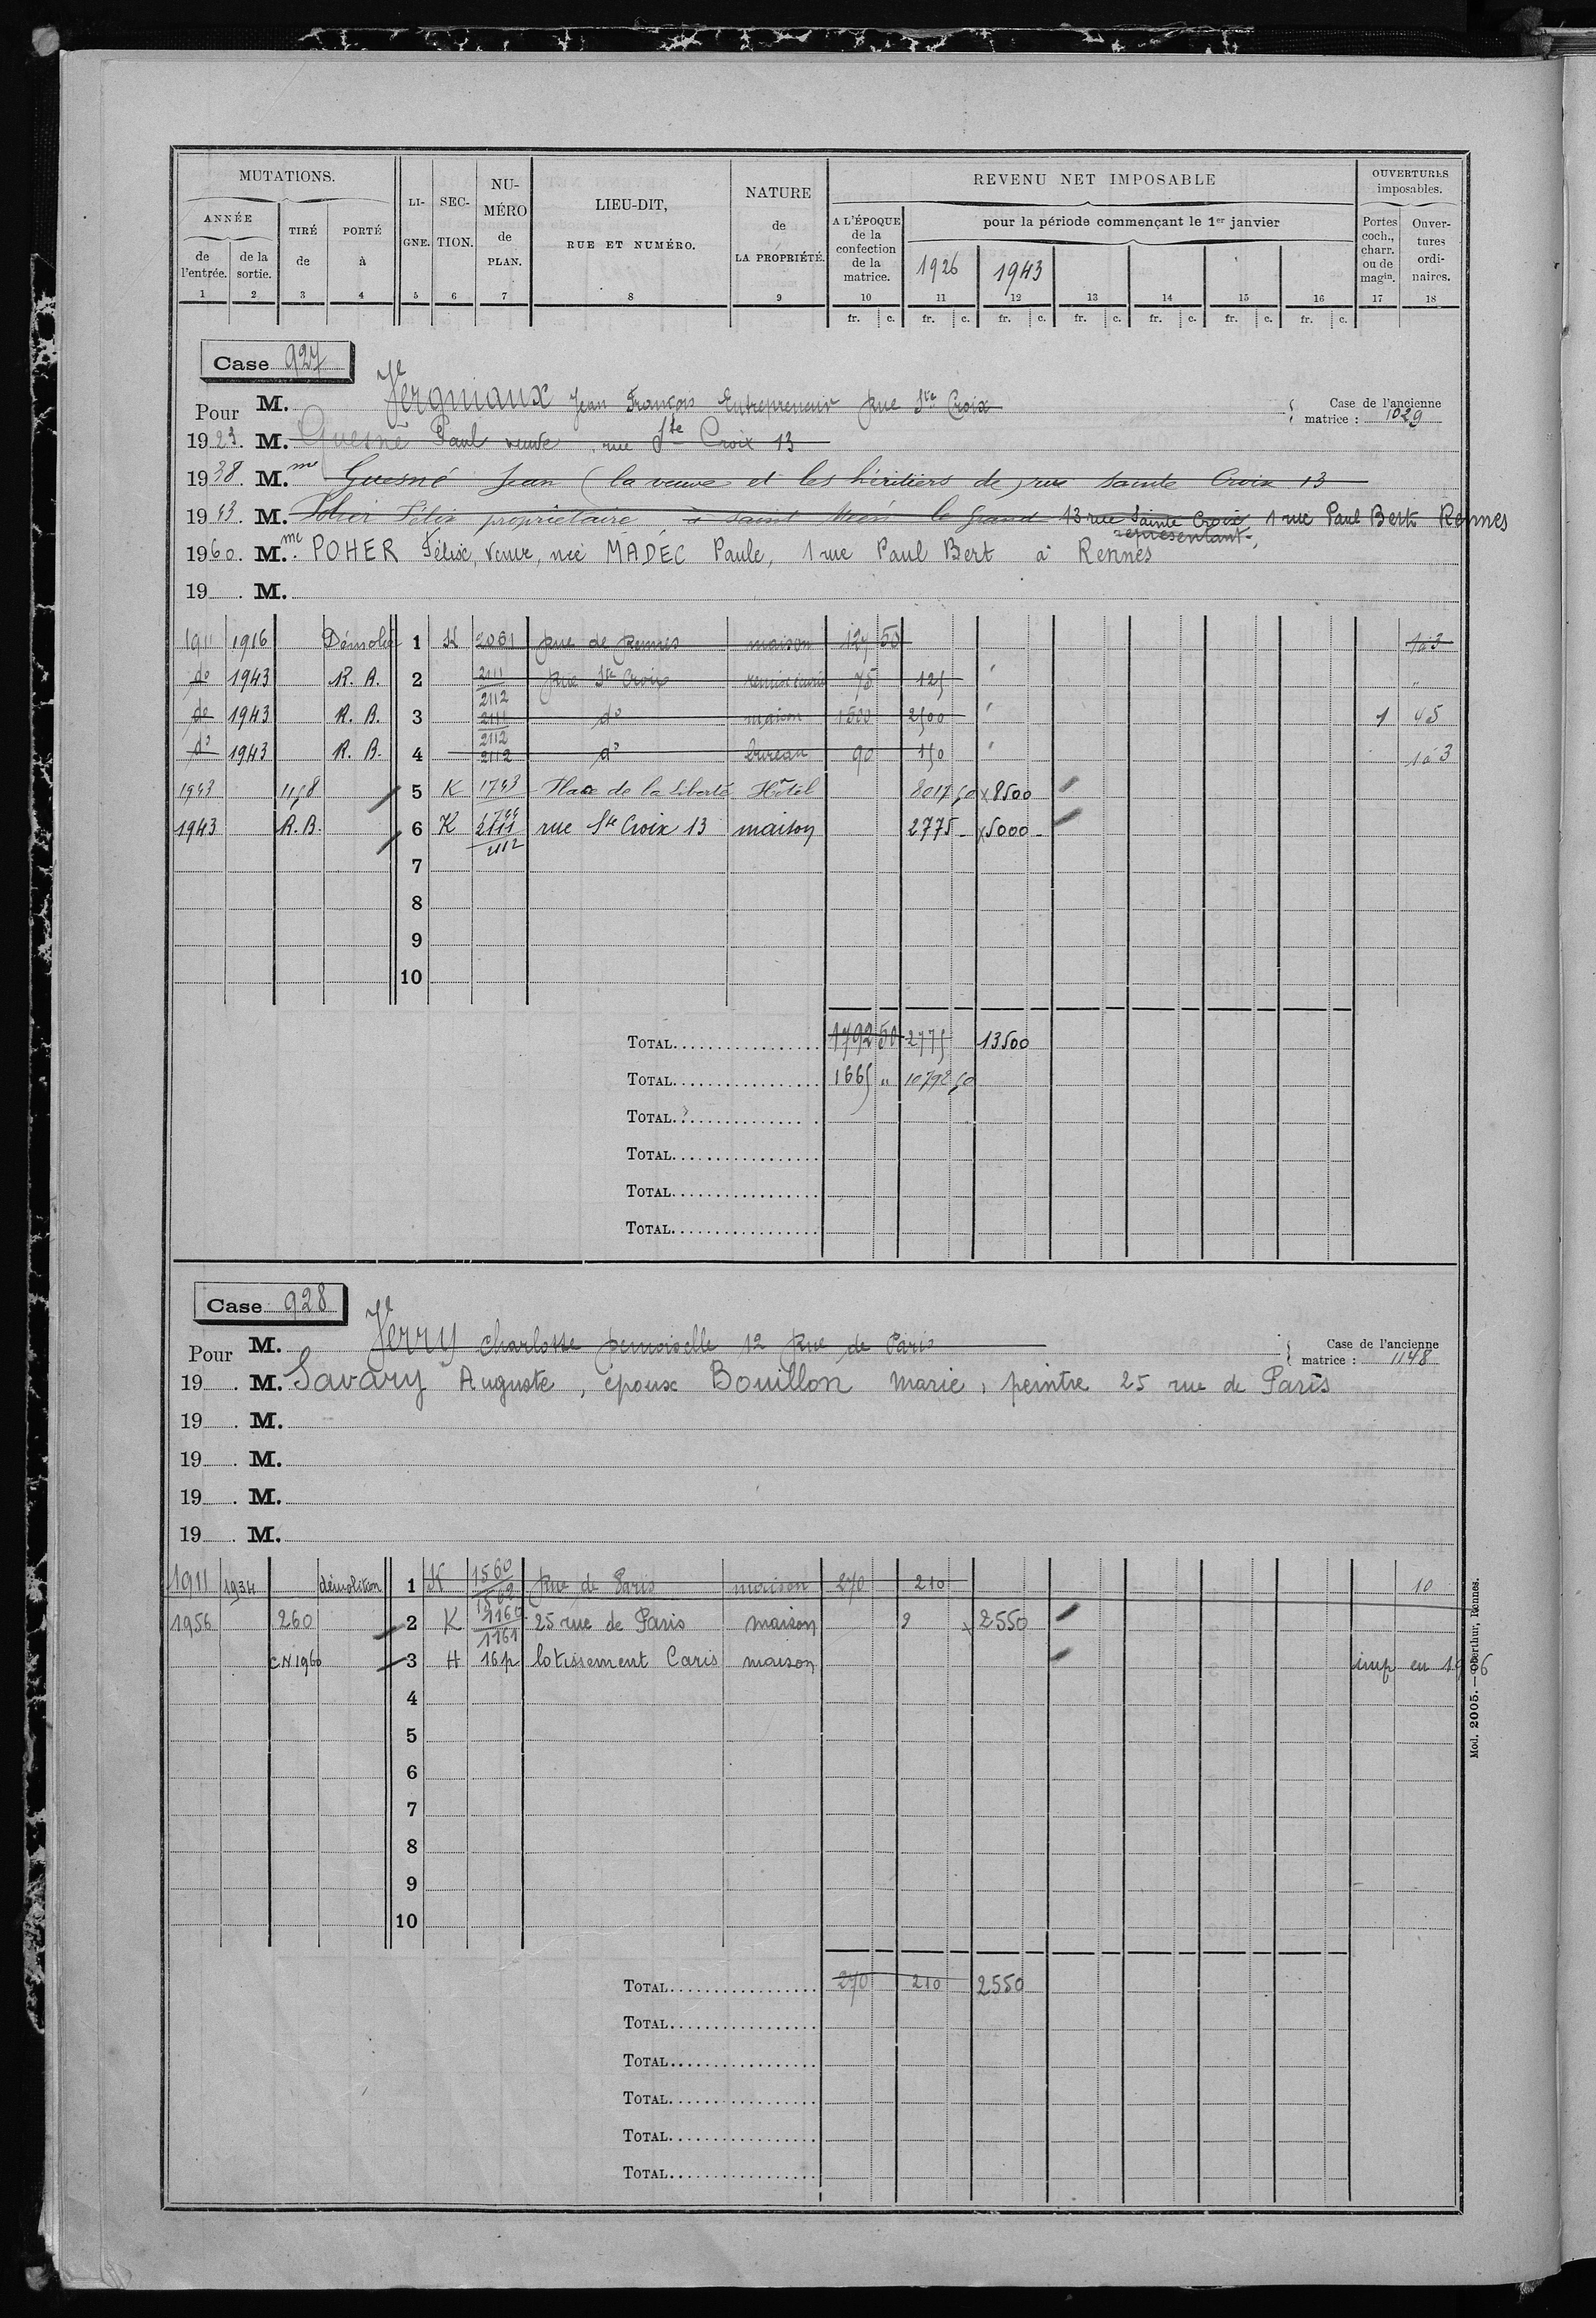 MUTATIONS. LI-GNE. SEC-TION. NU-MÉRO de PLAN. LIEU-DIT, RUE ET NUMÉRO. NATURE de LA PROPRIÉTÉ. REVENU NET IMPOSABLE OUVERTURES imposables.
ANNÉE TIRÉ de PORTÉ à A L'ÉPOQUE de la confection de la matrice. pour la période commençant le 1er janvier Portes coch., charr. ou de magin. Ouver-tures ordi-naires.
de l'entrée. de la sortie. 1926 1943
1 2 3 4 5 6 7 8 9 10 11 12 13 14 15 16 17 18
fr. c. fr. c. fr. c. fr. c. fr. c. fr. c. fr. c.
Case 927
Pour M. Jean François Entrepreneur Rue Ste Croix Case de l'ancienne matrice : 1029
1923. M. Guesné Paul veuve rue Ste Croix 13
1938. M.me Guesné Jean (la veuve et les héritiers de) rue Sainte Croix 13
1943. M. Poher Félix propriétaire à Saint Méen le Grand 13 rue Sainte Croix, 1 rue Paul Bert Rennes
représentant
1960. M.me POHER Félix, Veuve, née MADEC Paule, 1 rue Paul Bert à Rennes
19 . M.
1911 1916 Démolie 1 K 2061 Rue de Rennes maison 127 50 1à3
do 1943 R. A. 2 2111 2112 Rue Ste Croix remise écurie 75 125 "
do 1943 R. B. 3 2111 2112 do maison 1500 2500 " 1 45
do 1943 R. B. 4 2112 do bureau 90 150 " 1à3
1943 1158 5 K 1743 1744 Place de la Liberté Hôtel 8017 50 x 8500
1943 R. B. 6 K 2111 2112 rue Ste Croix 13 maison 2775 - x 5000 -
7
8
9
10
TOTAL 1792 50 2775 13500
TOTAL 1665 " 10792 50
TOTAL
TOTAL
TOTAL
TOTAL
Case 928
Pour M. Charlotte Demoiselle 12 Rue de Paris Case de l'ancienne matrice : 1148
19 . M. Savary Auguste, époux Bouillon Marie, peintre 25 rue de Paris
19 . M.
19 . M.
19 . M.
19 . M.
1911 1934 démolition 1 K 1560 1562 Rue de Paris maison 270 210 10
1956 260 2 K 1160 1161 25 rue de Paris maison 2 x 2550
CN 1960 3 H 16p lotissement Caris maison imp en 1986
4
5
6
7
8
9
10
TOTAL 270 210 2550
TOTAL
TOTAL
TOTAL
TOTAL
TOTAL
Mod. 2005. — Oberthur, Rennes.